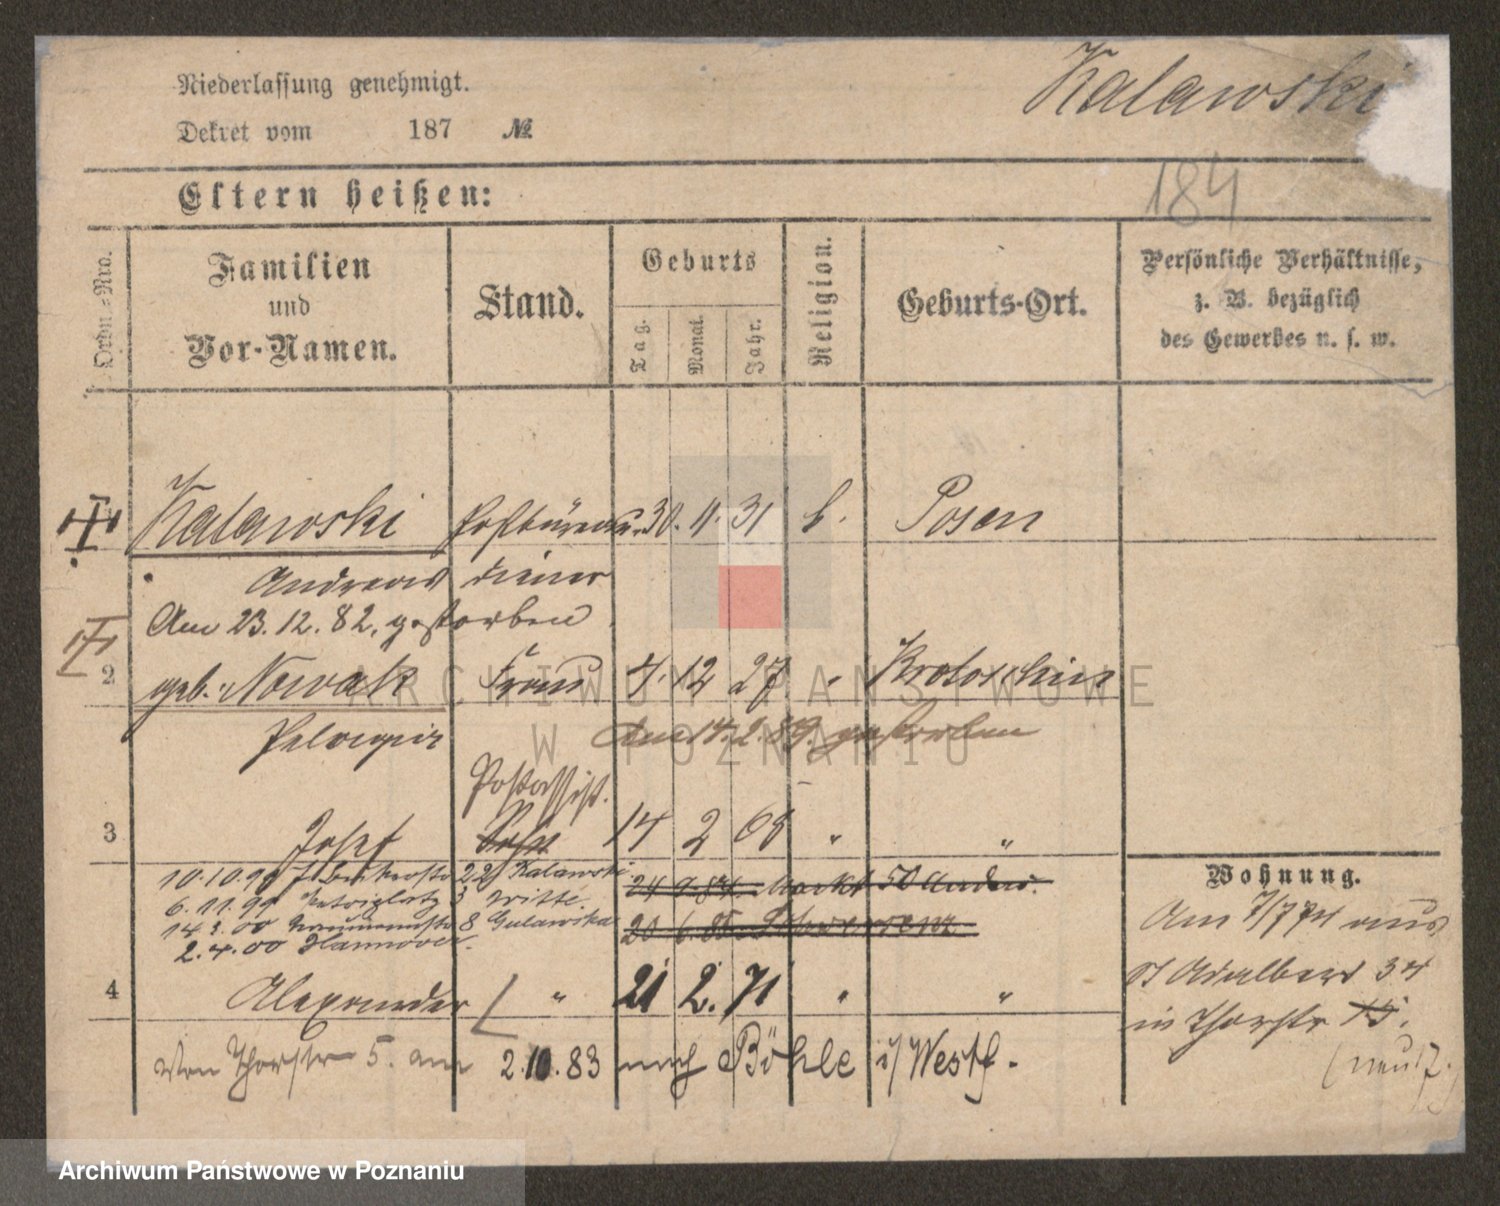 Niederlassung genehmigt.
Kalawski
Dekret vom 187 №
184
Eltern heißen:
Ordn.-Nro.
Familien
und
Vor-Namen.
Stand.
Geburts
Tag.
Monat.
Jahr.
Religion.
Geburts-Ort.
Persönliche Verhältnisse,
z. B. bezüglich
des Gewerbes u. s. w.
Kalawski Postbüreau- 30. 11. 31 k. Posen
Andreas diener
Am 23.12.82. gestorben
2 geb. Nowak Frau 4. 12 27 " Krotoschin
Pelagia Am 14.2.89. gestorben
Postassist.
3 Josef 14 2 68 " "
10.10.99 22 Kalawski
24 9.84 Markt 50
6.11.99 3 Witte.
14.3.00 8 Gulawska
20 6.85 Schwersenz
2.4.00 Hannover.
4 Alexander " 21 2. 71 " "
Von Thorstr 5. am 2.10.83 nach Böhle i/Westf.
Wohnung.
Am 7/7 74 aus
St Adalbert 34
in Thorstr 15.
(neu 17.)
ARCHIWUM PAŃSTWOWE
W POZNANIU
Archiwum Państwowe w Poznaniu